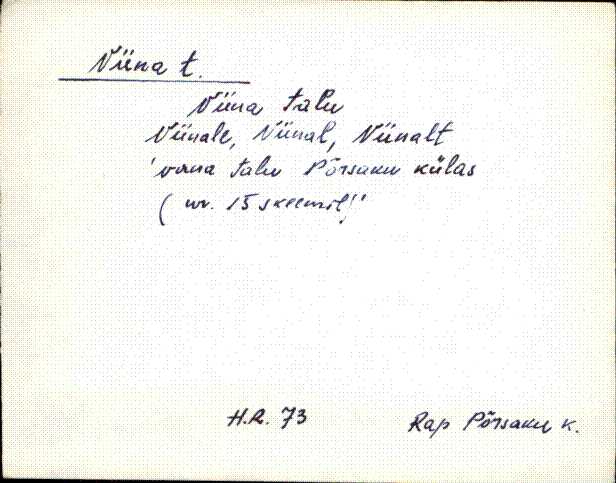 Viina t.
Viina talu
Viinale, Viinal, Viinalt
'vana talu Põrsaku külas
(nr. 15 skeemil)'
H.R. 73
Rap Põrsaku k.